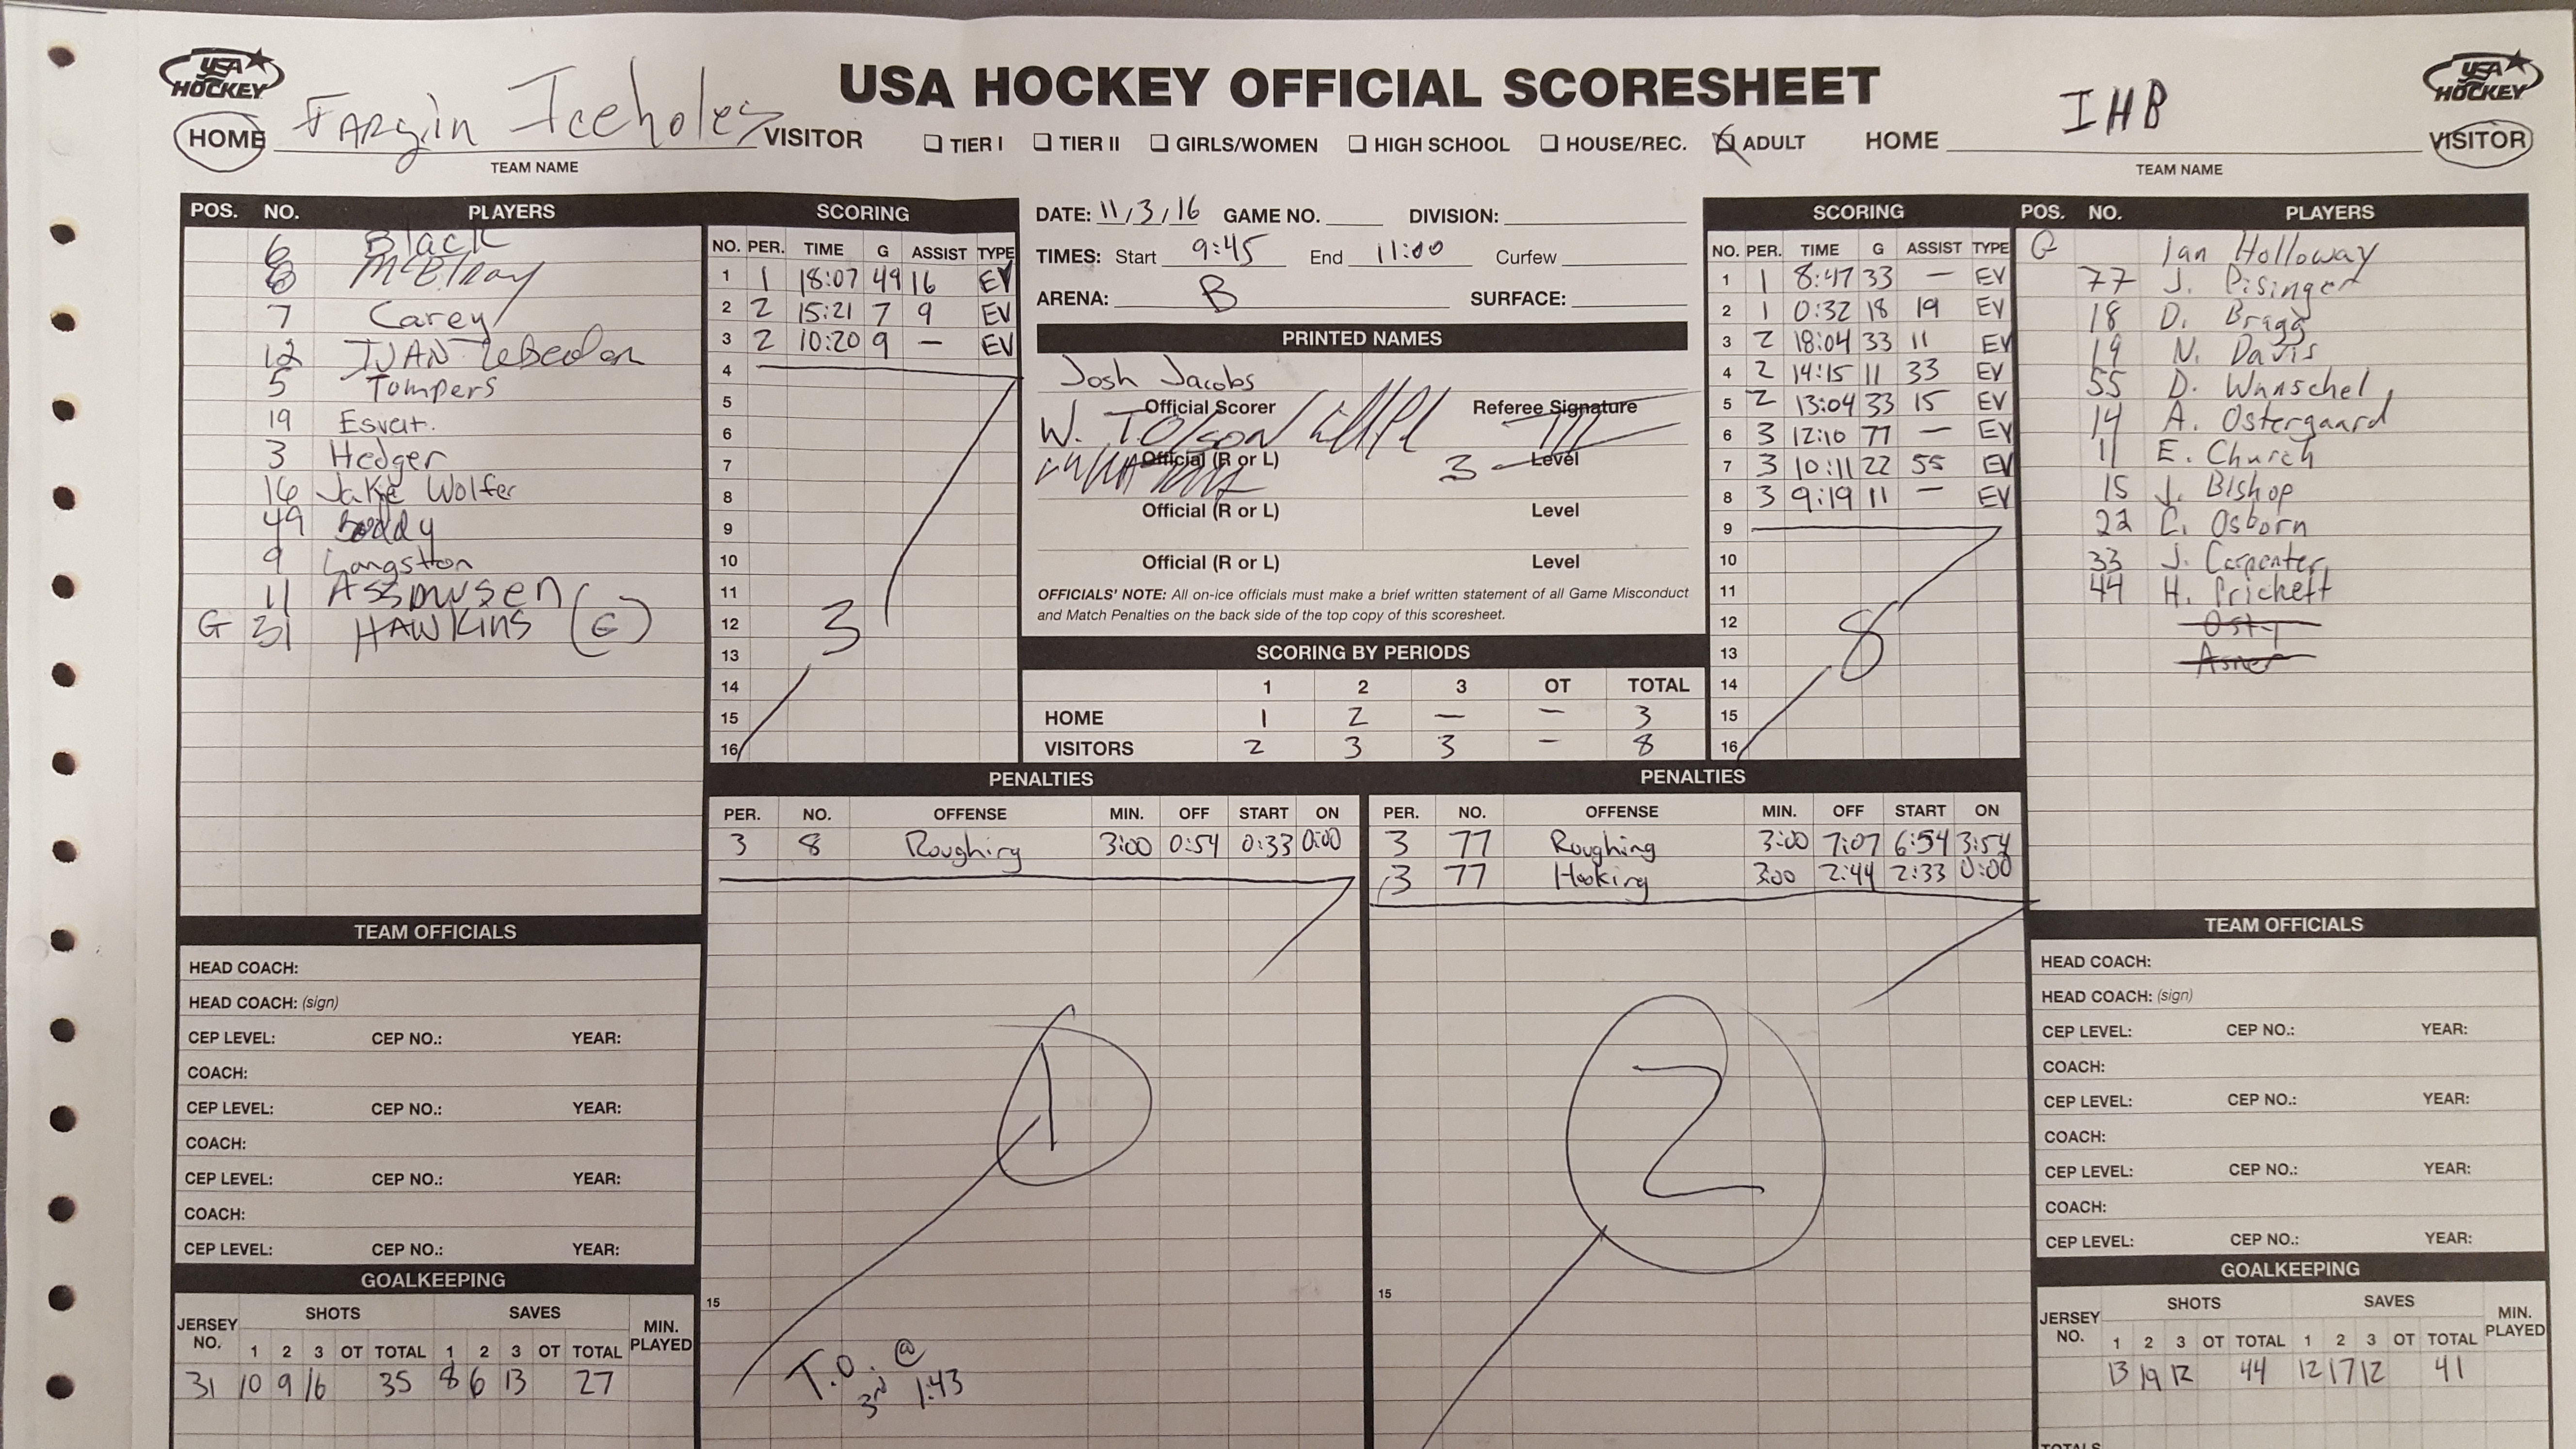 USA HOCKEY
USA HOCKEY OFFICIAL SCORESHEET
USA HOCKEY
HOME Fargin Iceholes VISITOR
TEAM NAME
TIER I TIER II GIRLS/WOMEN HIGH SCHOOL HOUSE/REC. ADULT
HOME IHB VISITOR
TEAM NAME
POS. NO. PLAYERS
6 Black
8 McElroy
7 Carey
12 IVAN
5 Tompers
19
3 Hedger
16 Jake Wolfer
49 Boddy
9 Langston
11 Assmusen
G 31 HAWKINS (G)
SCORING
NO. PER. TIME G ASSIST TYPE
1 1 18:07 49 16 EV
2 2 15:21 7 9 EV
3 2 10:20 9 — EV
4
5
6
7
8
9
10
11
12
13
14
15
16
3
DATE: 11/3/16 GAME NO. DIVISION:
TIMES: Start 9:45 End 11:00 Curfew
ARENA: B SURFACE:
PRINTED NAMES
Josh Jacobs
Official Scorer Referee Signature
W. T. Olson
Official (R or L) 3 Level
Official (R or L) Level
Official (R or L) Level
OFFICIALS' NOTE: All on-ice officials must make a brief written statement of all Game Misconduct
and Match Penalties on the back side of the top copy of this scoresheet.
SCORING BY PERIODS
1 2 3 OT TOTAL
HOME 1 2 — — 3
VISITORS 2 3 3 — 8
SCORING
NO. PER. TIME G ASSIST TYPE
1 1 8:47 33 — EV
2 1 0:32 18 19 EV
3 2 18:04 33 11 EV
4 2 14:15 11 33 EV
5 2 13:04 33 15 EV
6 3 12:10 77 — EV
7 3 10:11 22 55 EV
8 3 9:19 11 — EV
9
10
11
12
13
14
15
16
8
POS. NO. PLAYERS
G Ian Holloway
77 J. Pisinger
18 D. Bragg
19 N. Davis
55 D. Wanschel
14 A. Ostergaard
11 E. Church
15 J. Bishop
22 C. Osborn
33 J. Carpenter
44 H. Prickett
Osty
Asner
PENALTIES
PER. NO. OFFENSE MIN. OFF START ON
3 8 Roughing 3:00 0:54 0:33 0:00
1
15
T.O. @
3rd 1:43
PENALTIES
PER. NO. OFFENSE MIN. OFF START ON
3 77 Roughing 3:00 7:07 6:54 3:54
3 77 Hooking 3:00 2:44 2:33 0:00
2
15
TEAM OFFICIALS
HEAD COACH:
HEAD COACH: (sign)
CEP LEVEL: CEP NO.: YEAR:
COACH:
CEP LEVEL: CEP NO.: YEAR:
COACH:
CEP LEVEL: CEP NO.: YEAR:
COACH:
CEP LEVEL: CEP NO.: YEAR:
GOALKEEPING
JERSEY NO. SHOTS SAVES MIN. PLAYED
1 2 3 OT TOTAL 1 2 3 OT TOTAL
31 10 9 16 35 8 6 13 27
TEAM OFFICIALS
HEAD COACH:
HEAD COACH: (sign)
CEP LEVEL: CEP NO.: YEAR:
COACH:
CEP LEVEL: CEP NO.: YEAR:
COACH:
CEP LEVEL: CEP NO.: YEAR:
COACH:
CEP LEVEL: CEP NO.: YEAR:
GOALKEEPING
JERSEY NO. SHOTS SAVES MIN. PLAYED
1 2 3 OT TOTAL 1 2 3 OT TOTAL
13 19 12 44 12 17 12 41
TOTALS